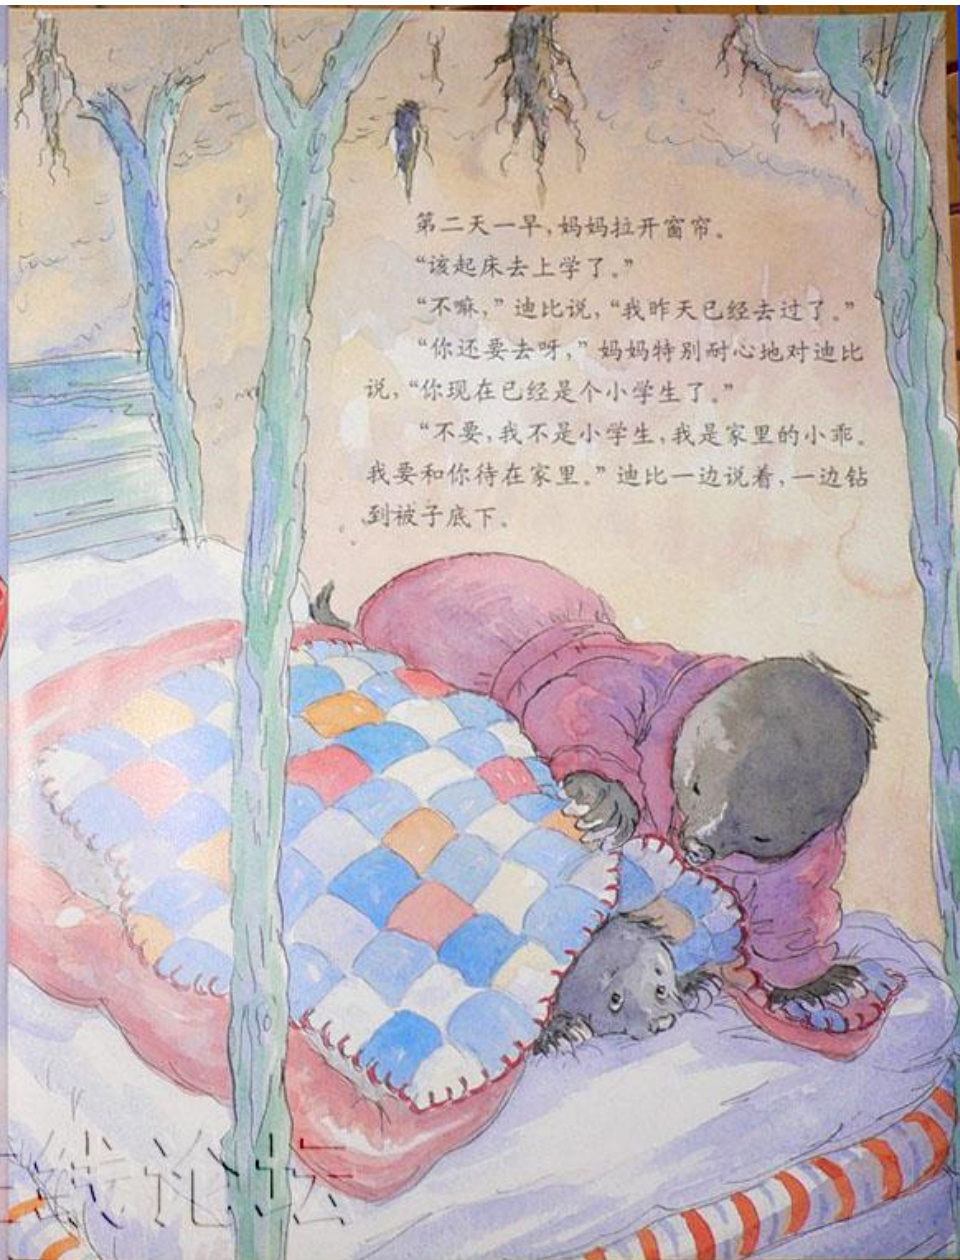 第二天一早，妈妈拉开窗帘。
“该起床去上学了。”
“不嘛，”迪比说，“我昨天已经去过了。”
“你还要去呀，”妈妈特别耐心地对迪比
说，“你现在已经是个小学生了。”
“不要，我不是小学生，我是家里的小乖。
我要和你待在家里。”迪比一边说着，一边钻
到被子底下。
线论坛